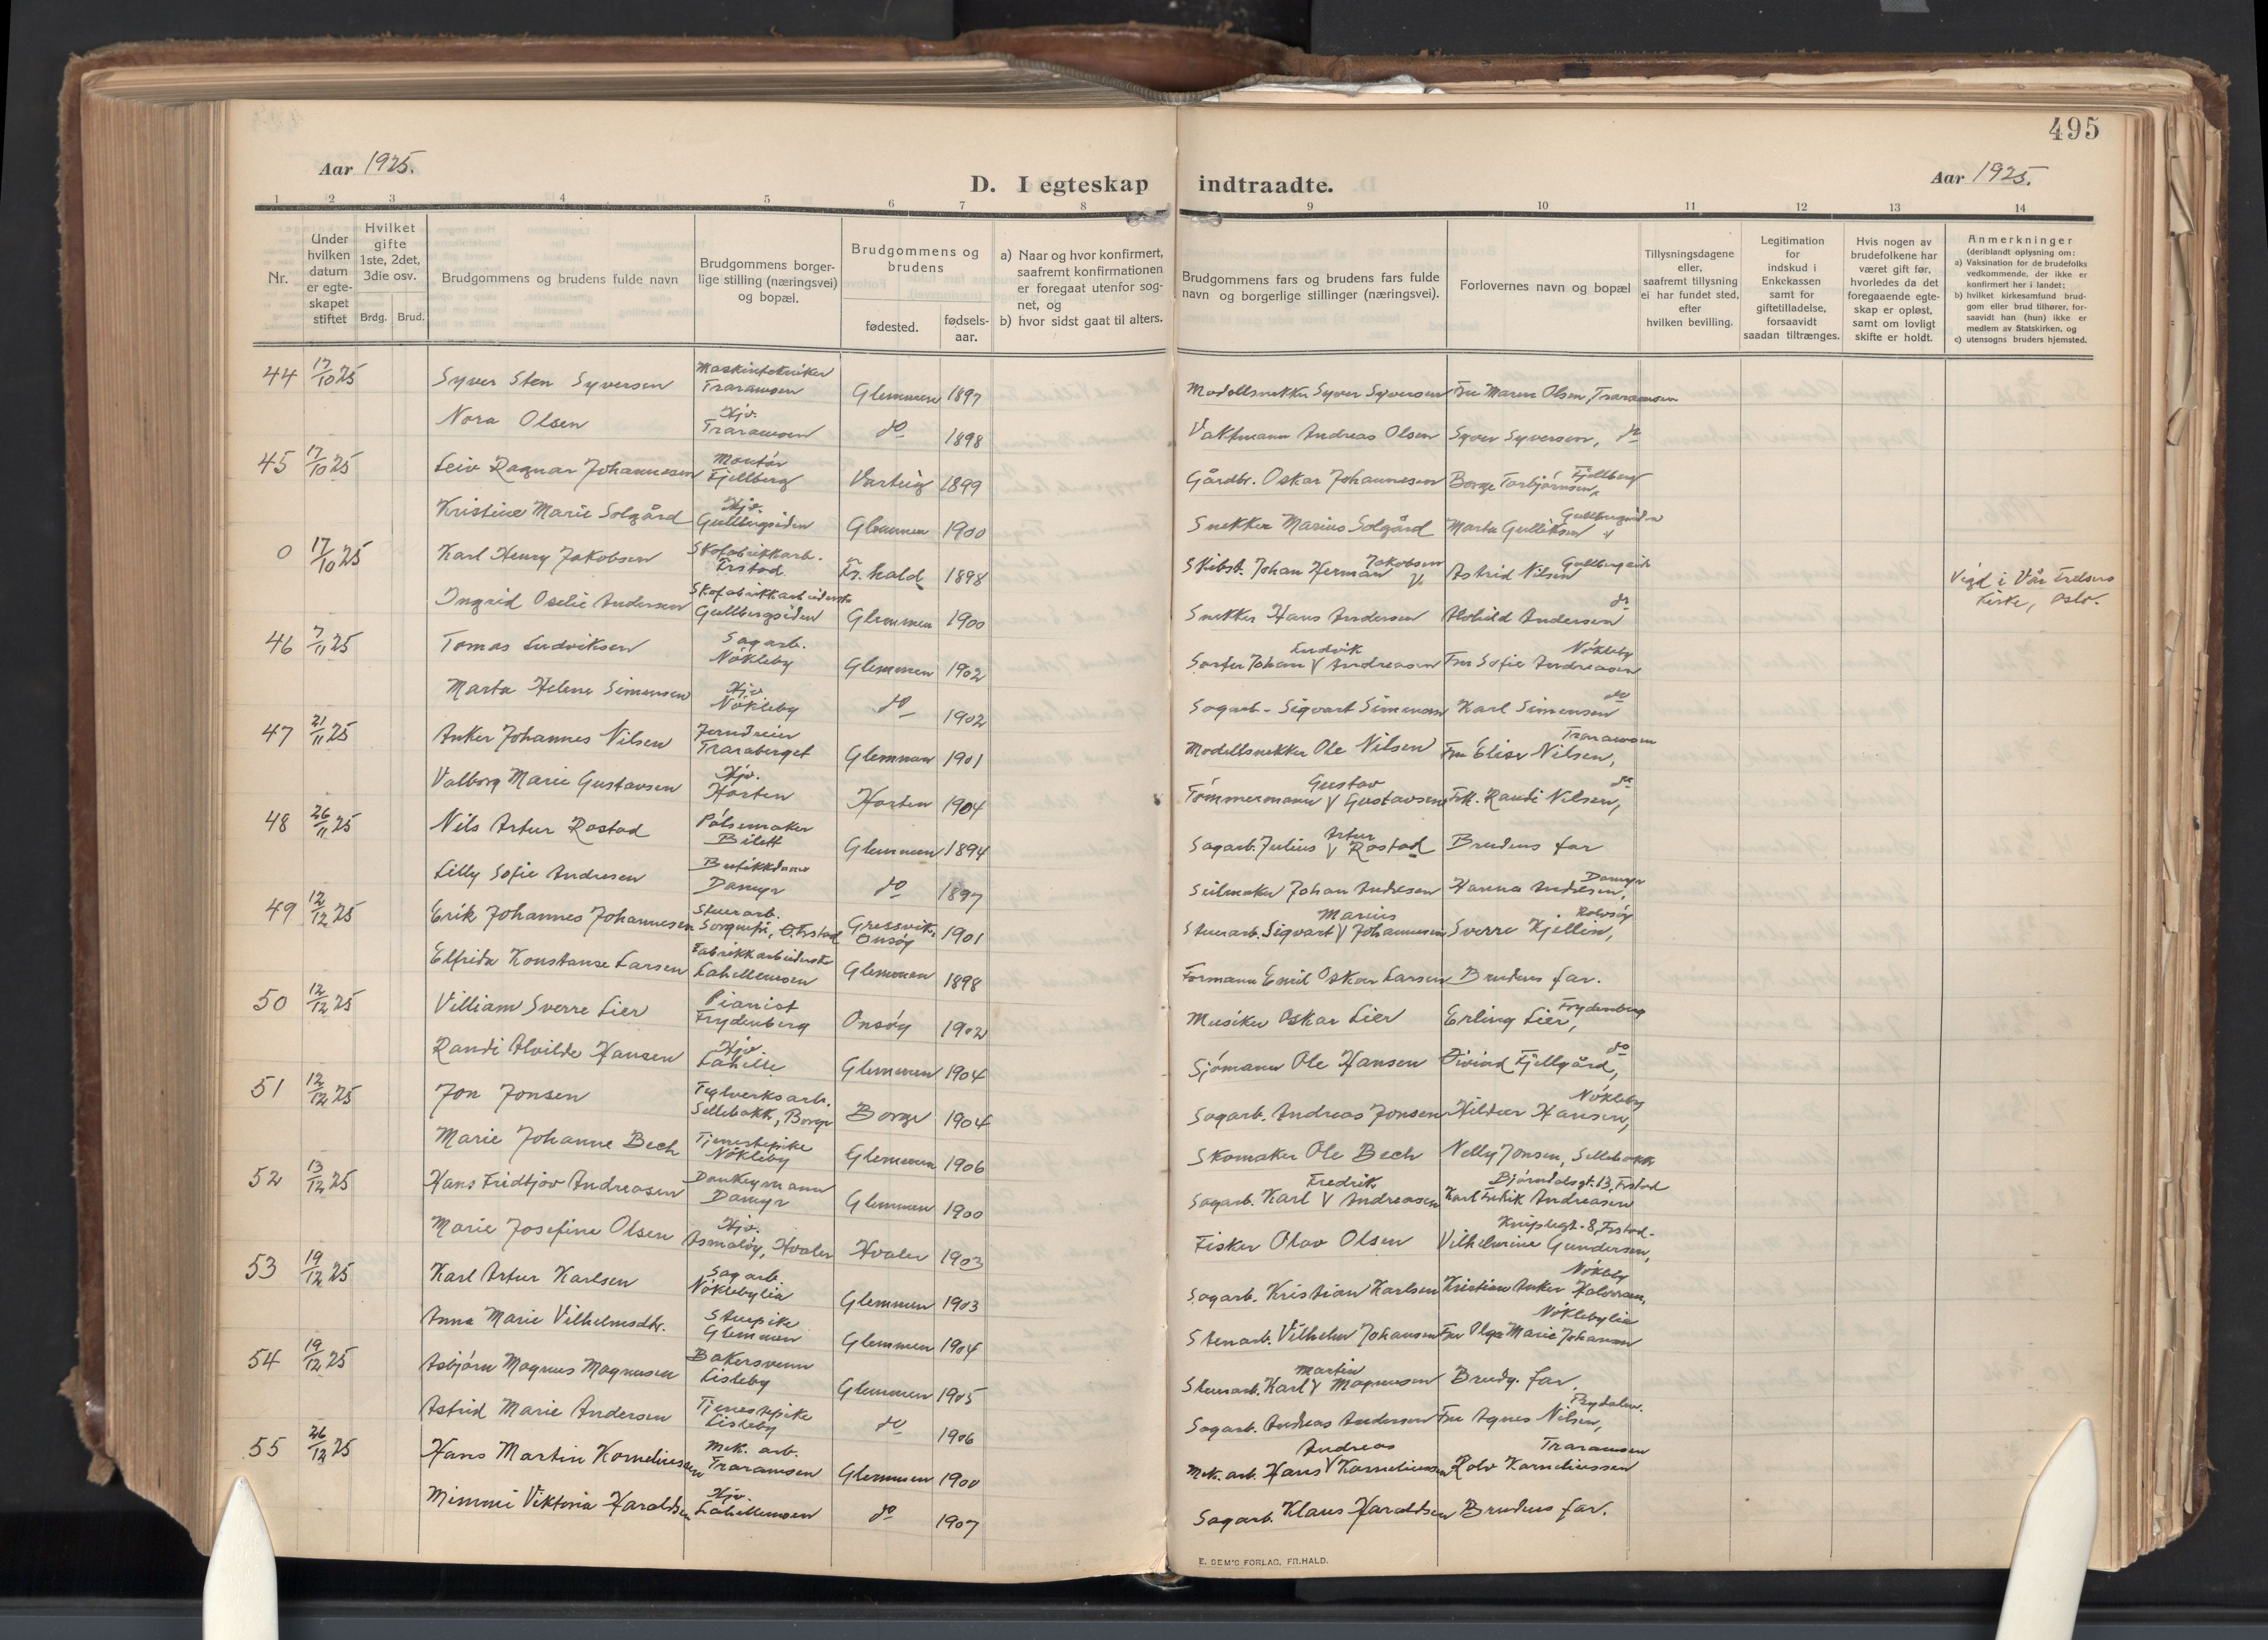 495
Aar 1925.
D. I egteskap indtraadte.
Aar 1925.
1 2 3 4 5 6 7 8 9 10 11 12 13 14
Nr.
Under hvilken datum er egteskapet stiftet
Hvilket gifte 1ste, 2det, 3die osv.
Brdg. Brud.
Brudgommens og brudens fulde navn
Brudgommens borgerlige stilling (næringsvei) og bopæl.
Brudgommens og brudens
fødested.
fødselsaar.
a) Naar og hvor konfirmert, saafremt konfirmationen er foregaat utenfor sognet, og
b) hvor sidst gaat til alters.
Brudgommens fars og brudens fars fulde navn og borgerlige stillinger (næringsvei).
Forlovernes navn og bopæl
Tillysningsdagene eller, saafremt tillysning ei har fundet sted, efter hvilken bevilling.
Legitimation for indskud i Enkekassen samt for giftetilladelse, forsaavidt saadan tiltrænges.
Hvis nogen av brudefolkene har været gift før, hvorledes da det foregaaende egteskap er opløst, samt om lovligt skifte er holdt.
Anmerkninger
(deriblandt oplysning om:
a) Vaksination for de brudefolks vedkommende, der ikke er konfirmert her i landet;
b) hvilket kirkesamfund brudgom eller brud tilhører, forsaavidt han (hun) ikke er medlem av Statskirken, og
c) utensogns bruders hjemsted.
44 17/10 25 Syver Sten Syversen Maskintekniker Traraasen Glemmen 1897 Modellsnekker Syver Syversen Fru Maren Olsen, Traraasen
Nora Olsen Hjv. Traraasen do 1898 Vaktmann Andreas Olsen Syver Syversen, do
45 17/10 25 Leiv Ragnar Johannesen Montør Fjellberg Varteig 1899 Gårdbr. Oskar Johannesen Borge Torbjørnsen, Fjellberg
Kristine Marie Solgård Hjv. Gullbergsiden Glemmen 1900 Snekker Marius Solgård Marta Gulliksen Gullbergsiden
0 17/10 25 Karl Henry Jakobsen Skofabrikkarb. Frstad Fr.hald 1898 Skibst. Johan Herman Jakobsen Astrid Nilsen Gullbergsiden Vigd i Vår Frelsers Kirke, Oslo.
Ingrid Oselie Andersen Skofabrikkarbeiderske Gullbergsiden Glemmen 1900 Snekker Hans Andersen Alvhild Andersen do
46 7/11 25 Tomas Ludviksen Sagarb. Nökleby Glemmen 1902 Sorter Johan Ludvik Andreasen Fru Sofie Andreasen Nökleby
Marta Helene Simensen Hjv. Nökleby do 1902 Sagarb. Sigvart Simensen Karl Simensen do
47 21/11 25 Anker Johannes Nilsen Jerndreier Traraberget Glemmen 1901 Modellsnekker Ole Nilsen Fru Elise Nilsen, Traraasen
Valborg Marie Gustavsen Hjv. Horten Horten 1904 Tömmermann Gustav Gustavsen Frk. Randi Nilsen, do
48 26/11 25 Nils Artur Rostad Pölsemaker Bilett Glemmen 1894 Sagarb. Julius Artur Rostad Brudens far
Lilly Sofie Andresen Butikkdame Damyr do 1897 Seilmaker Johan Andresen Hanna Andresen, Damyr
49 12/12 25 Erik Johannes Johannesen Stenarb. Sorgenfri, O. Frstad Gressvik, Onsöy 1901 Stenarb. Sigvart Marius Johannesen Sverre Kjellin, Rolvsöy
Elfrida Konstanse Larsen Fabrikkarbeiderske Lahellemoen Glemmen 1898 Formann Emil Oskar Larsen Brudens far.
50 12/12 25 Villiam Sverre Lier Pianist Frydenberg Onsöy 1902 Musiker Oskar Lier Erling Lier, Frydenberg
Randi Alvilde Hansen Hjv. Lahelle Glemmen 1904 Sjömann Ole Hansen Öivind Fjellgård, do
51 12/12 25 Jon Jonsen Teglverksarb. Sellebakk, Borge Borge 1904 Sagarb. Andreas Jonsen Hildur Hansen, Nökleby
Marie Johanne Bech Tjenestepike Nökleby Glemmen 1906 Skomaker Ole Bech Nelly Jonsen, Sellebakk
52 13/12 25 Hans Fridtjov Andreasen Donkeymann Damyr Glemmen 1900 Sagarb. Karl Fredrik Andreasen Karl Fredrik Andreasen Bjørndalsgt. 13, Frstad
Marie Josefine Olsen Hjv. Asmalöy, Hvaler Hvaler 1903 Fisker Olav Olsen Vilhelmine Gundersen, Kniplegt. 8, Frstad.
53 19/12 25 Karl Artur Karlsen Sagarb. Nöklebylia Glemmen 1903 Sagarb. Kristian Karlsen Kristian Anker Halvorsen, Nökleby
Anna Marie Vilhelmsdtr. Stuepike Glemmen Glemmen 1904 Stenarb. Vilhelm Johansen Fru Olga Marie Johansen Nöklebylia
54 19/12 25 Asbjörn Magnus Magnusen Bakersvenn Lisleby Glemmen 1905 Stenarb. Karl Martin Magnussen Brudg. far,
Astrid Marie Andersen Tjenestepike Lisleby do 1906 Sagarb. Andreas Andersen Fru Agnes Nilsen, Frydalen.
55 26/12 25 Hans Martin Korneliussen Mek. arb. Traraasen Glemmen 1900 Mek. arb. Hans Andreas Korneliussen Rolv Korneliussen Traraasen
Mimmi Viktoria Haraldsen Hjv. Lahellemoen do 1907 Sagarb. Klaus Haraldsen Brudens far.
E. SEM'S FORLAG, FR.HALD.